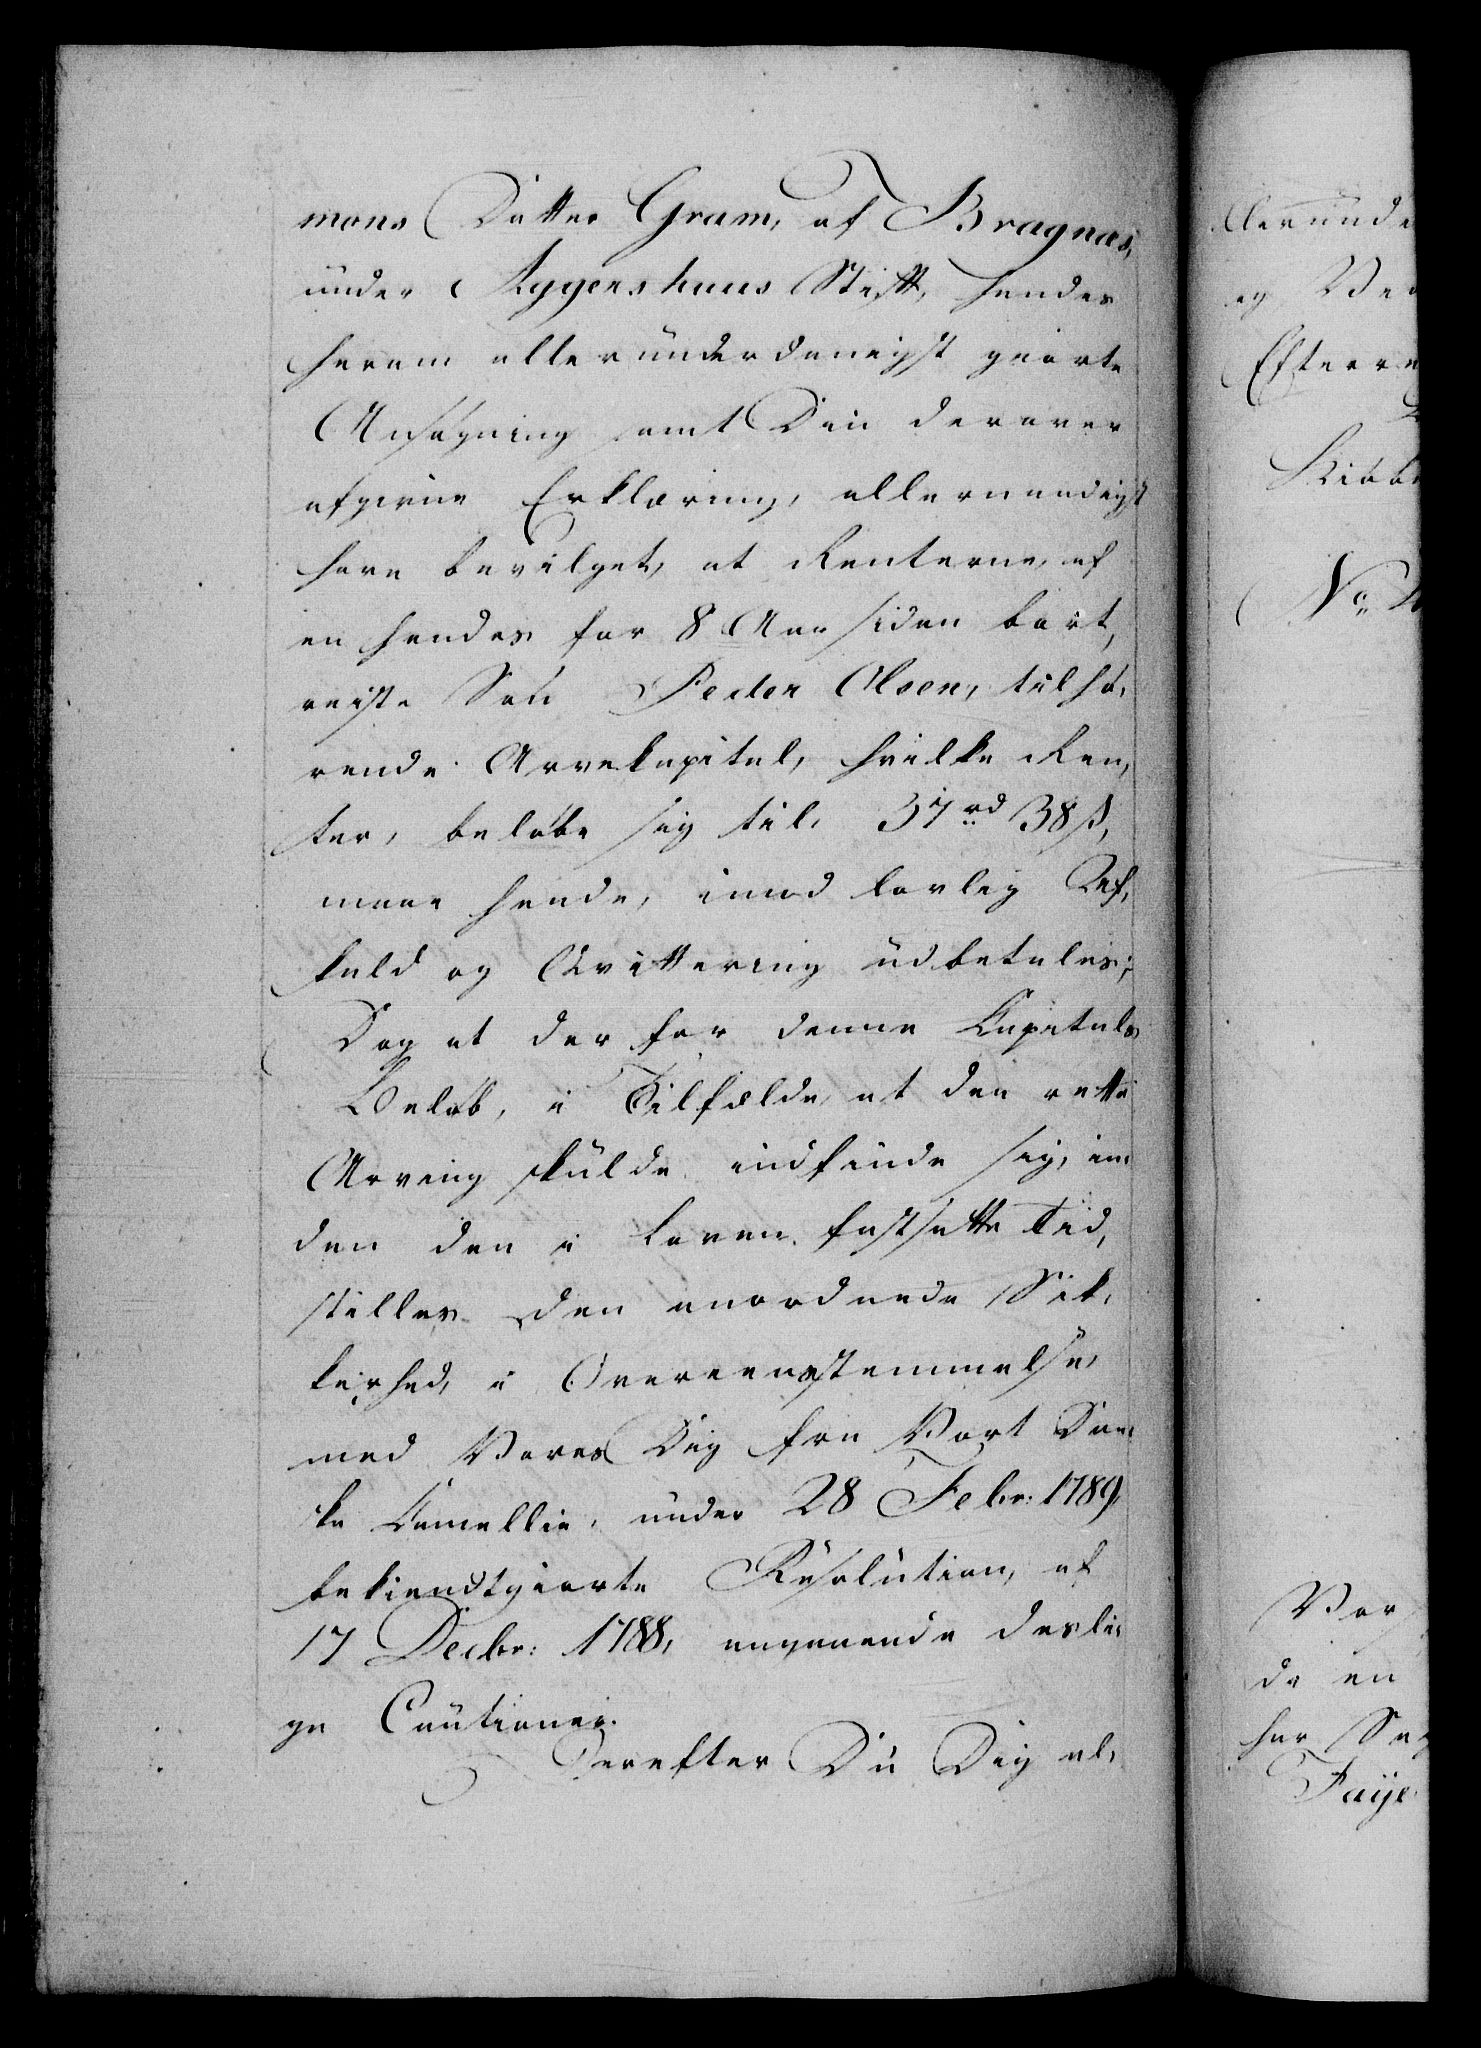 mons Datter Gram, af Bragnæs,
under Aggershuus Stift, hendes
herom allerunderdanigst giorte
Ansøgning samt Din derover
afgivne Erklæring, allernaadigst
have bevilget, at Renterne, af
en hendes for 8 Aar siden bort,
reiste Søn Peder Olsen, tilhø,
rende Arvekapital, hvilke Ren,
ter, beløbe sig til, 37 rd 38 ß,
maae hende, imod lovlig Af,
kald og Qvittering udbetales;
Dog at der for denne Capitals
Beløb, i Tilfælde, at den rette
Arving skulde indfinde sig, in,
den den i Loven fastsatte Tid,
stilles den anordnede Sik,
kerhed, i Overeensstemmelse,
med Vores Dig fra Vort Dan,
ske Cancellie, under 28 Febr: 1789,
bekiendtgiorte Resolution, af
17 Decbr: 1788, angaaende desli,
ge Cautioner.
Derefter Du Dig al,
lerunde
og Ve
Efterre
Kiøbe
No
Vor
de en
har
Faye